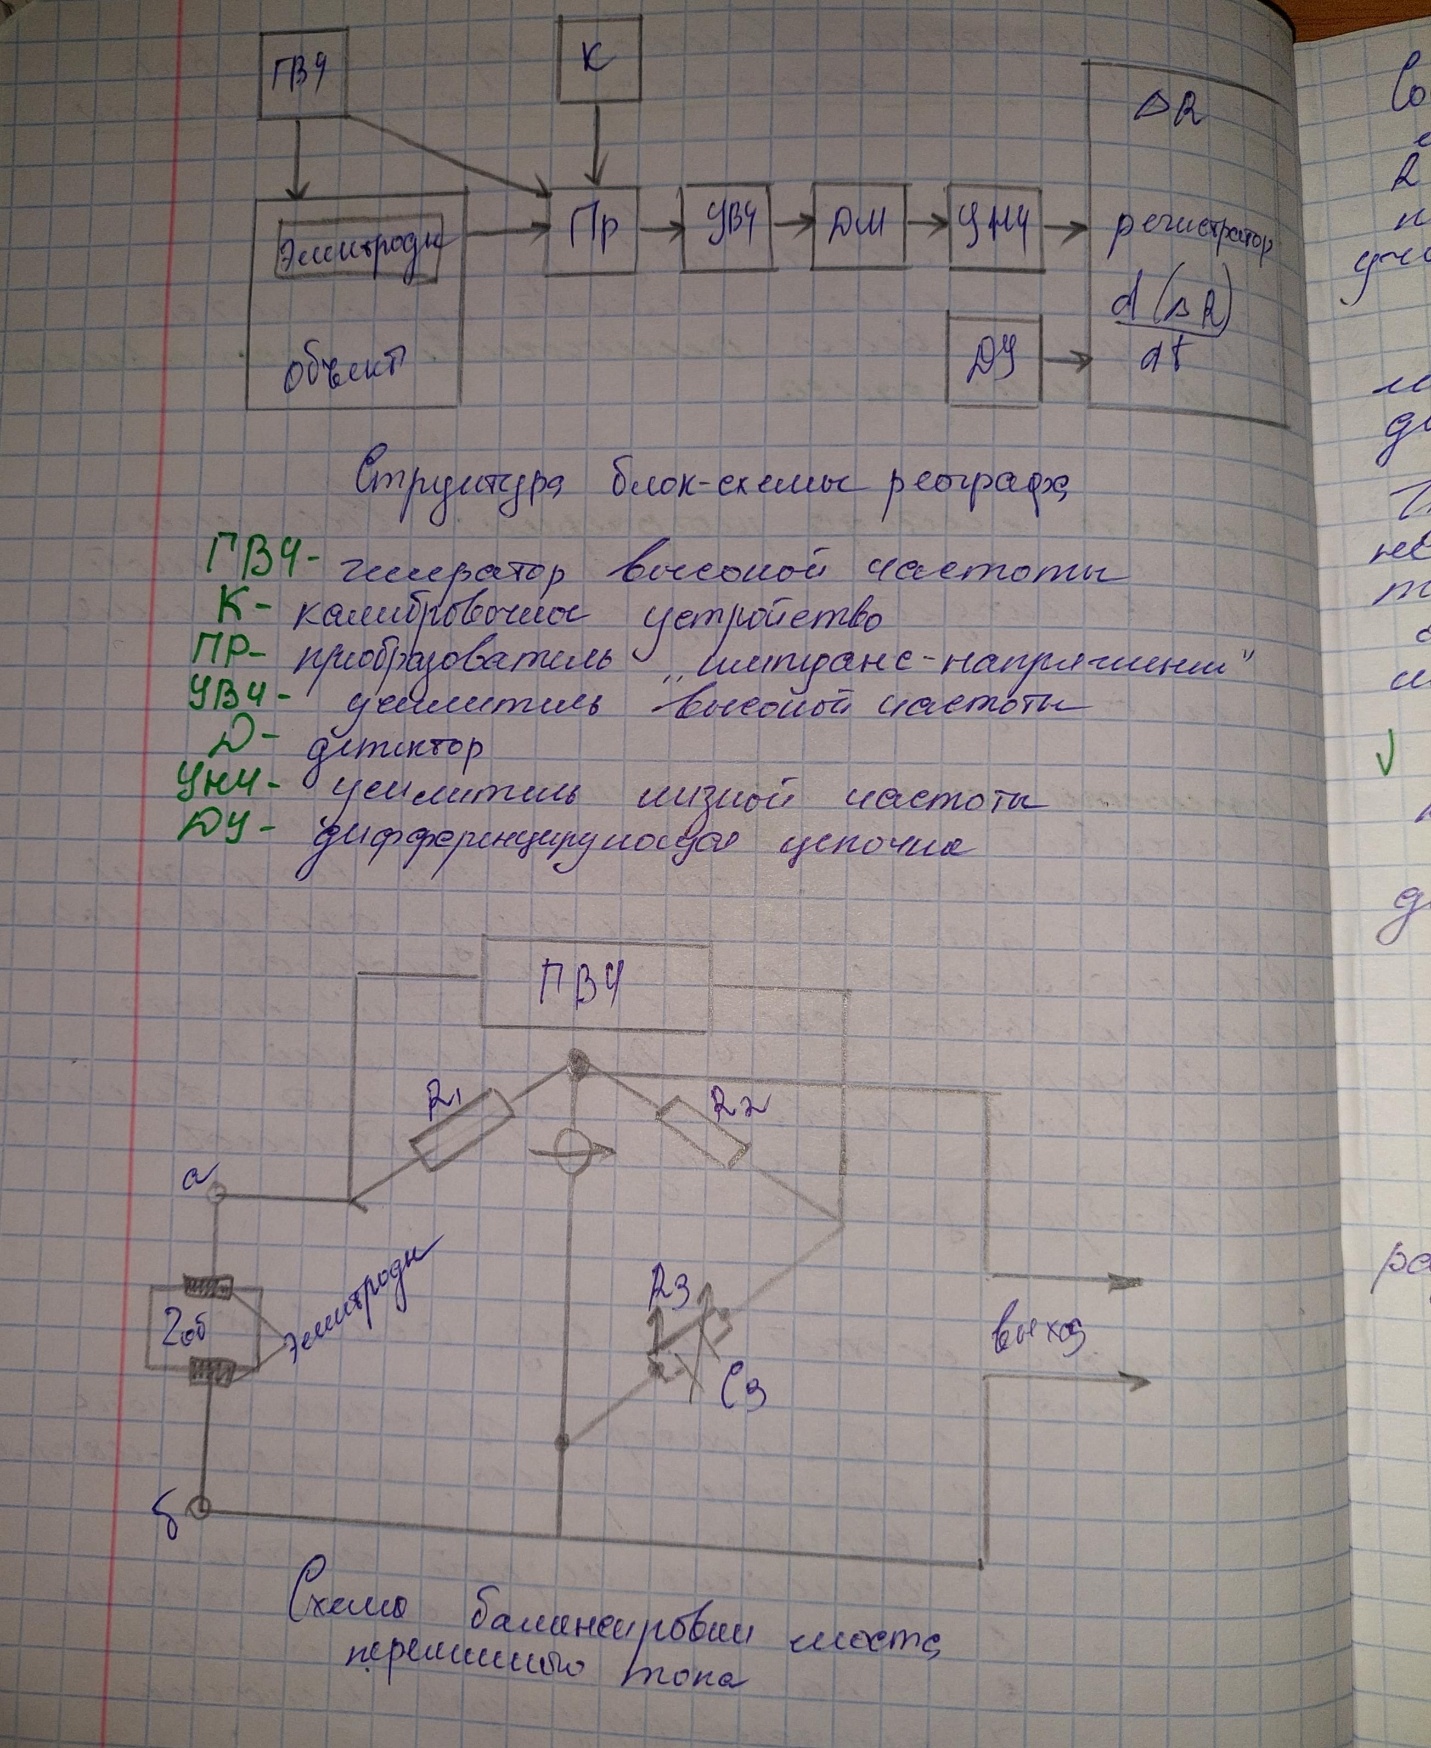 ГВЧ
К
ΔR
Электроды
Пр
УВЧ
ДМ
УНЧ
регистратор
d(ΔR)
dt
объект
ДУ
Структура блок-схемы реографа
ГВЧ- генератор высокой частоты
К- калибровочное устройство
ПР- преобразователь "импеданс-напряжение"
УВЧ- усилитель высокой частоты
Д- детектор
УНЧ- усилитель низкой частоты
ДУ- дифференцирующая цепочка
ГВЧ
R1
R2
а
Электроды
Zоб
R3
C3
выход
б
Схема балансировки моста
переменного тока